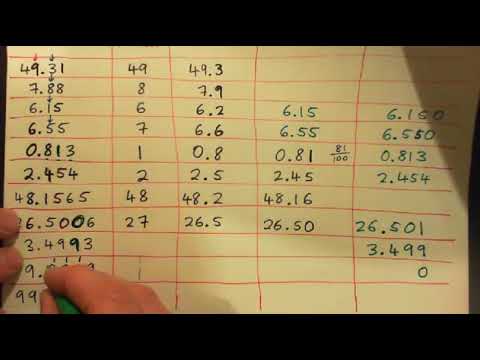 49.31 49 49.3
7.88 8 7.9
6.15 6 6.2 6.15 6.150
6.55 7 6.6 6.55 6.550
0.813 1 0.8 0.81 81/100 0.813
2.454 2 2.5 2.45 2.454
48.1565 48 48.2 48.16
26.5006 27 26.5 26.50 26.501
3.4993 3.499
1 0
99